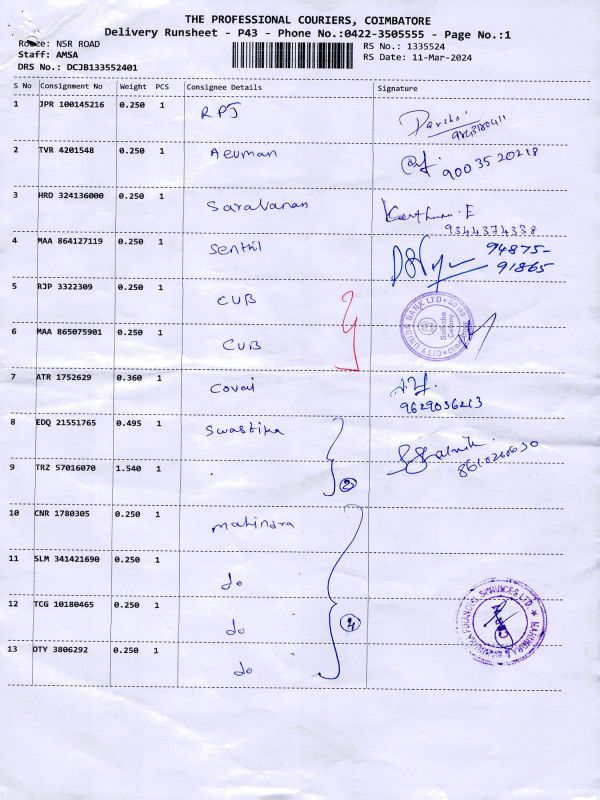 THE PROFESSIONAL COURIERS, COIMBATORE
Delivery Runsheet - P43 - Phone No.:0422-3505555 - Page No.:1
Route: NSR ROAD
RS No.: 1335524
Staff: AMSA
RS Date: 11-Mar-2024
DRS No.: DCJB133552401
S No Consignment No Weight PCS Consignee Details Signature
1 JPR 100145216 0.250 1 RPJ
2 TVR 4201548 0.250 1 Aeuman 90035 20218
3 HRD 324136000 0.250 1 Saravanan Karthun.E
9344374338
4 MAA 864127119 0.250 1 Senthil 94875-
91865
5 RJP 3322309 0.250 1 CUB
6 MAA 865075901 0.250 1 CUB
CITY UNION BANK LTD
7 ATR 1752629 0.360 1 Covai
9629036213
8 EDQ 21551765 0.495 1 Swastika
9 TRZ 57016070 1.540 1 2
10 CNR 1780305 0.250 1 mahindra
11 SLM 341421690 0.250 1 do
12 TCG 10180465 0.250 1 do 4
13 DTY 3806292 0.250 1 do
MAHINDRA & MAHINDRA FINANCIAL SERVICES LTD